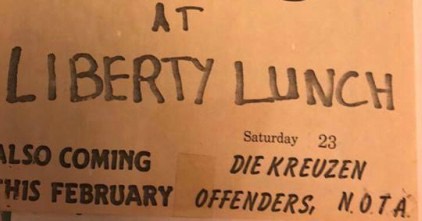 AT
LIBERTY LUNCH
Saturday 23
ALSO COMING DIE KREUZEN
THIS FEBRUARY OFFENDERS, NOTA